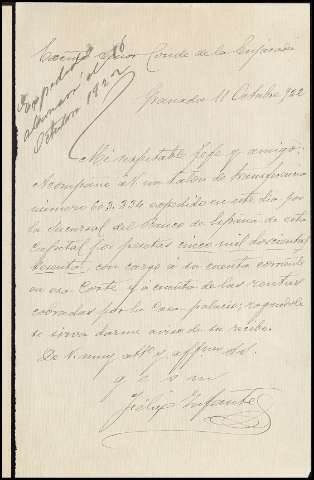 Excmo Señor Conde de la
Expedido
al 16
Octubre 1922
Granada 11 Octubre 922
Mi respetable Jefe y amigo:
Acompaño á V. un talon de transferencia
número 603.334 expedido en este dia por
la Sucursal del Banco de España de esta
Capital por pesetas cinco mil doscientas
, con cargo á su cuenta corriente
en esa Corte y á cuenta de las rentas
cobradas por la Casa palacio; rogandole
se sirva darme aviso de su recibo.
De V. muy attº y affmo
q e s m
Felix Infante